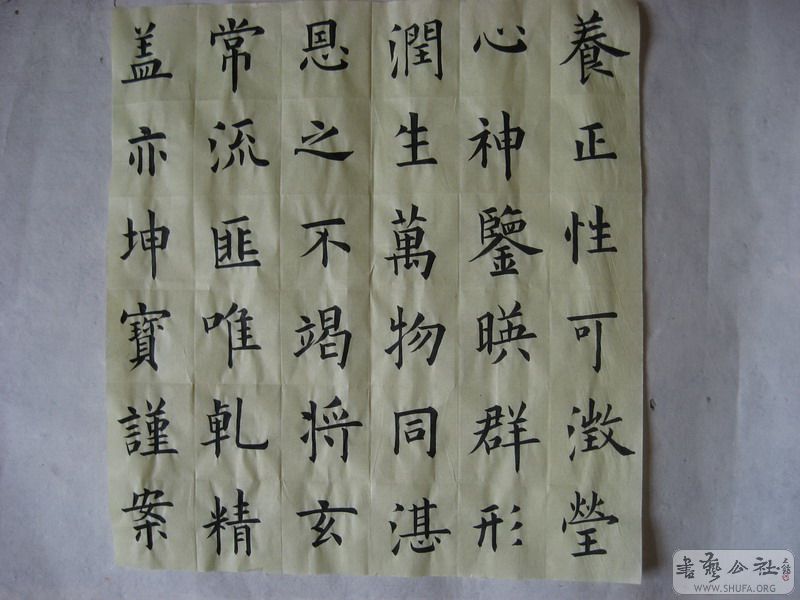 養正性可澂瑩
心神鑒暎群形
潤生萬物同湛
恩之不竭将玄
常流匪唯乹精
盖亦坤寶謹案
書藝公社
WWW.SHUFA.ORG